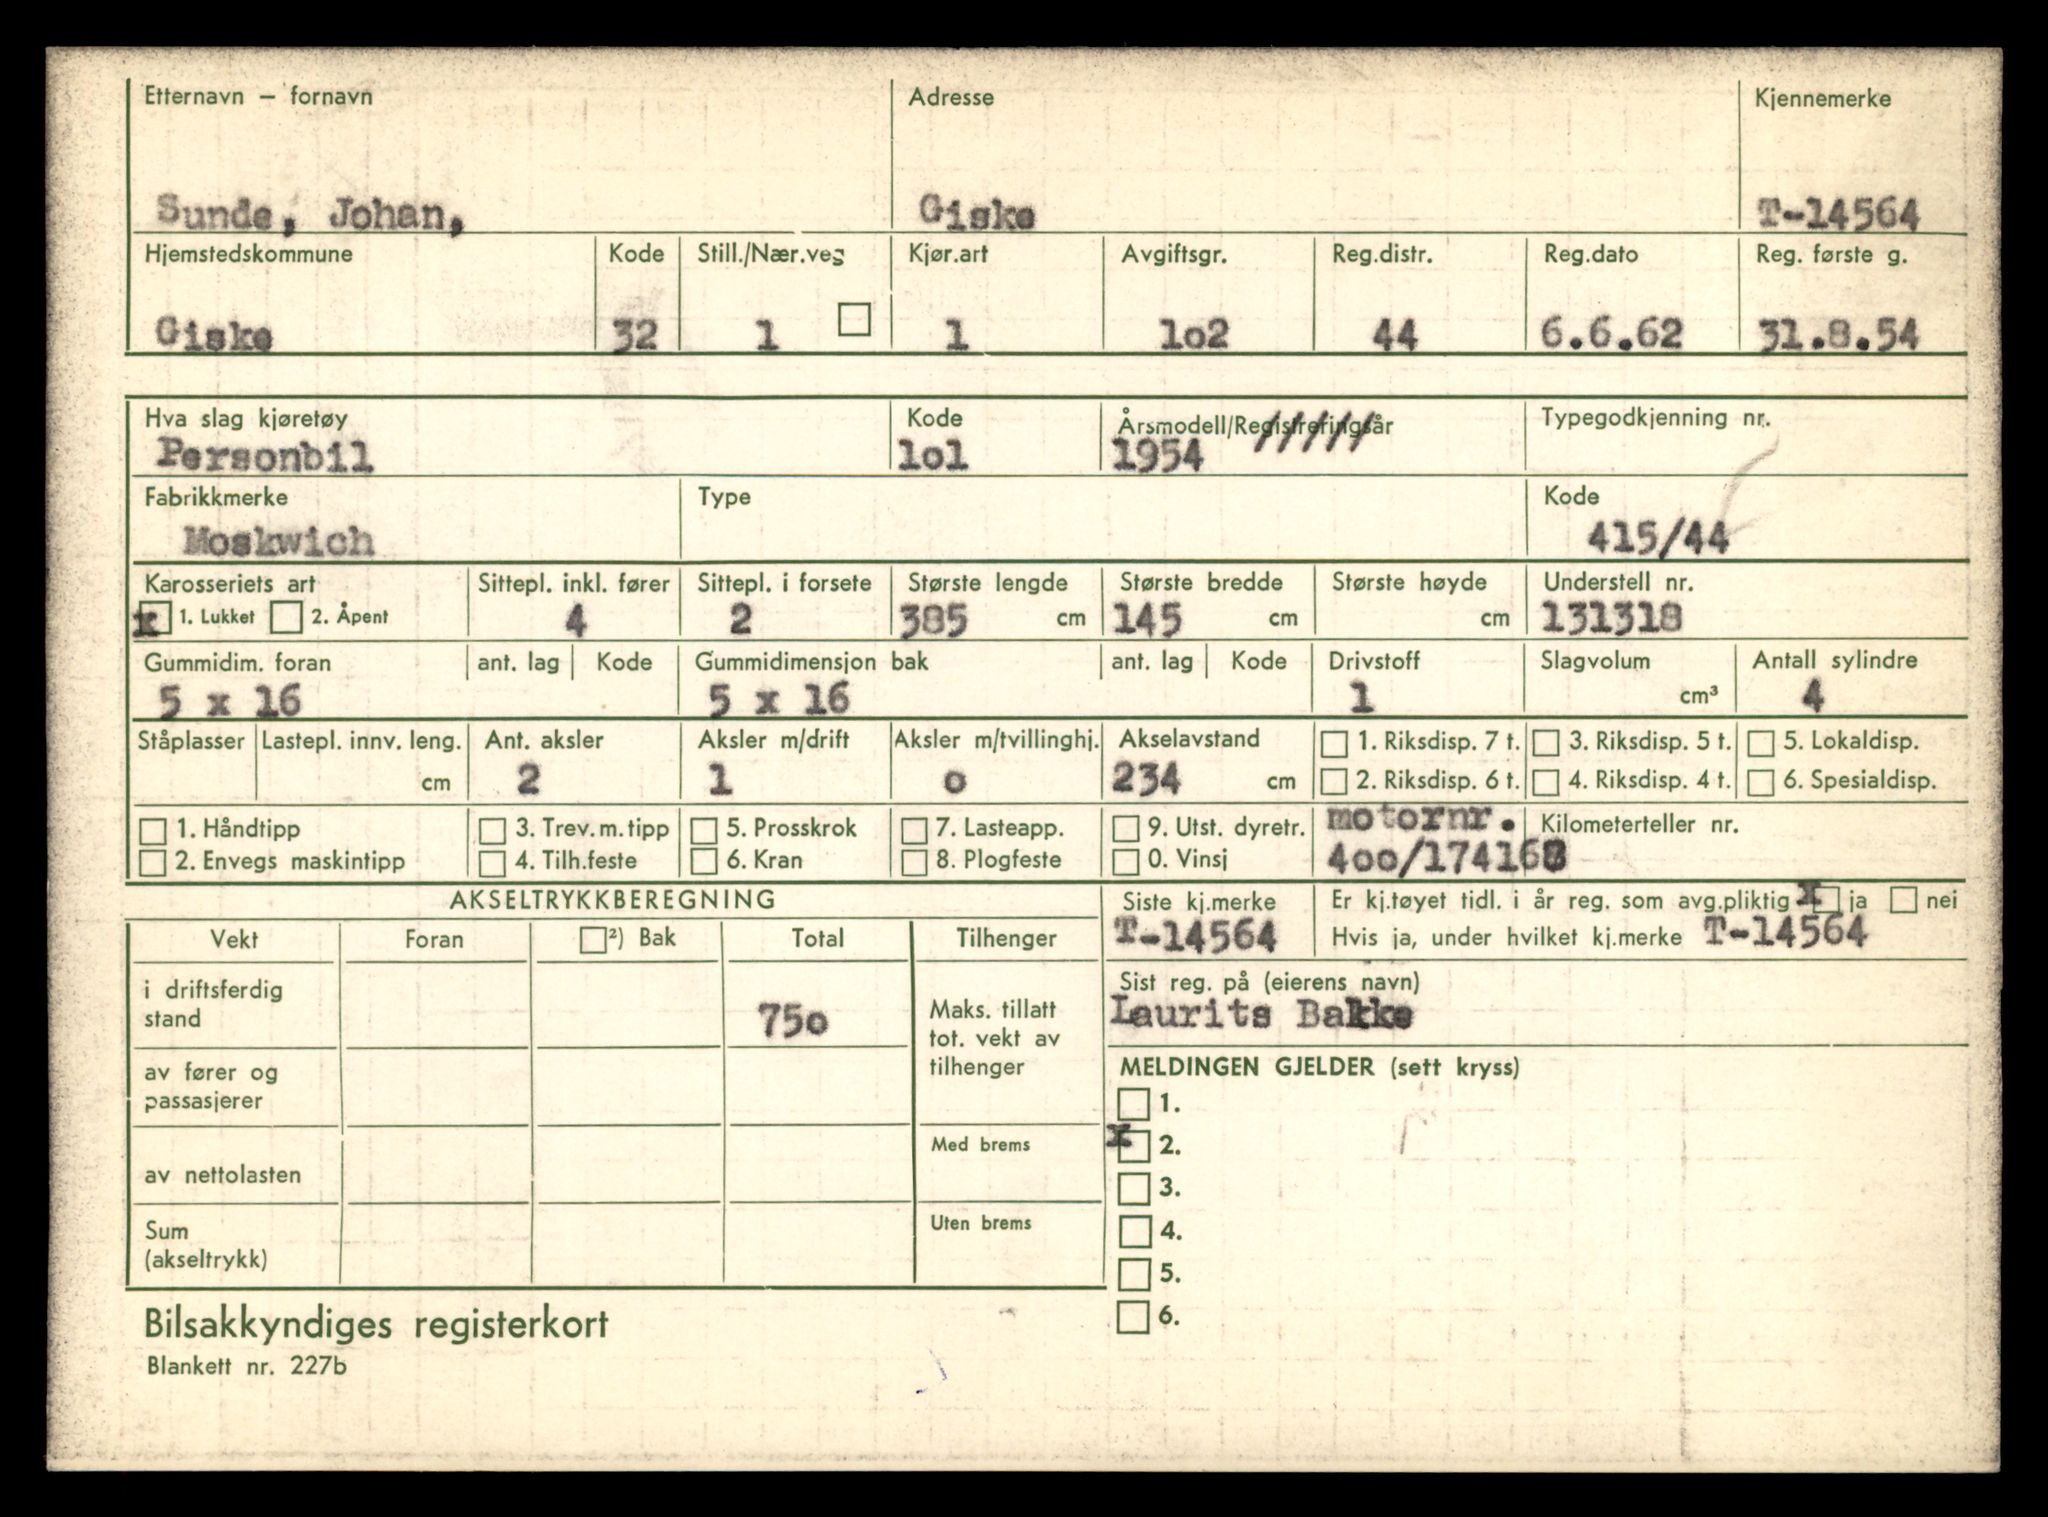 Etternavn – fornavn Adresse Kjennemerke
Sunde, Johan, Giske T-14564
Hjemstedskommune Kode Still./Nær.veg Kjør.art Avgiftsgr. Reg.distr. Reg.dato Reg. første g.
Giske 32 1 1 1o2 44 6.6.62 31.8.54
Hva slag kjøretøy Kode Årsmodell/Registreringsår Typegodkjenning nr.
Personbil lol 1954 /////
Fabrikkmerke Type Kode
Moskwich 415/44
Karosseriets art Sittepl. inkl. fører Sittepl. i forsete Største lengde Største bredde Største høyde Understell nr.
x 1. Lukket 2. Åpent 4 2 385 cm 145 cm cm 131318
Gummidim. foran ant. lag Kode Gummidimensjon bak ant. lag Kode Drivstoff Slagvolum Antall sylindre
5 x 16 5 x 16 1 cm³ 4
Ståplasser Lastepl. innv. leng. Ant. aksler Aksler m/drift Aksler m/tvillinghj. Akselavstand 1. Riksdisp. 7 t. 3. Riksdisp. 5 t. 5. Lokaldisp.
cm 2 1 o 234 cm 2. Riksdisp. 6 t. 4. Riksdisp. 4 t. 6. Spesialdisp.
1. Håndtipp 3. Trev. m. tipp 5. Prosskrok 7. Lasteapp. 9. Utst. dyretr. motornr. Kilometerteller nr.
2. Envegs maskintipp 4. Tilh.feste 6. Kran 8. Plogfeste 0. Vinsj
AKSELTRYKKBEREGNING Siste kj.merke Er kj.tøyet tidl. i år reg. som avg.pliktig x ja nei
T-14564 Hvis ja, under hvilket kj.merke T-14564
Vekt Foran ²) Bak Total Tilhenger
Sist reg. på (eierens navn)
Laurits Bakke
i driftsferdig
stand 75o
Maks. tillatt
tot. vekt av
tilhenger
MELDINGEN GJELDER (sett kryss)
av fører og
passasjerer
1.
Med brems x 2.
av nettolasten
3.
Sum
(akseltrykk)
Uten brems 4.
5.
6.
Bilsakkyndiges registerkort
Blankett nr. 227b